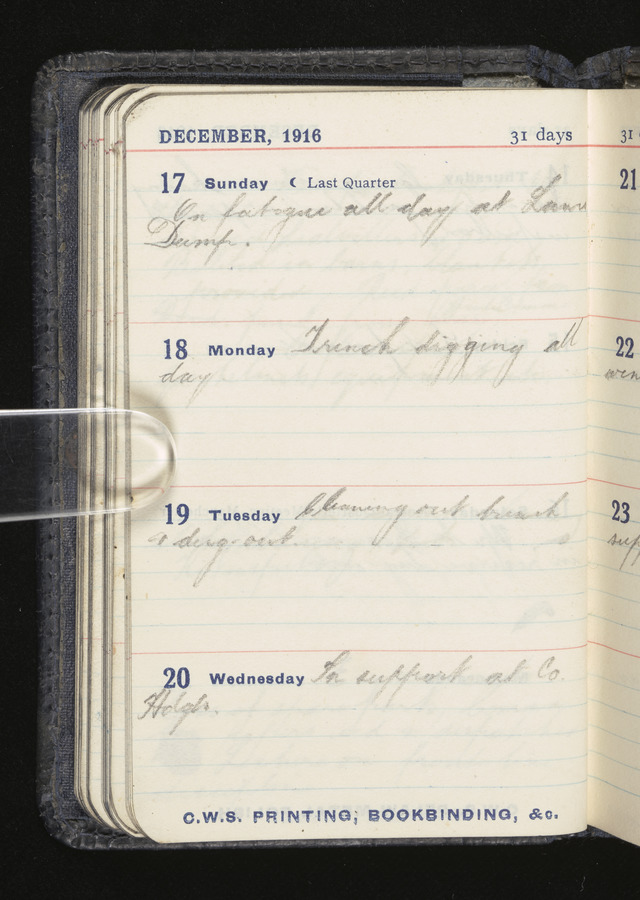 DECEMBER, 1916 31 days
17 Sunday ☾ Last Quarter
On fatigue all day at
Dump.
18 Monday Trench digging all
day
19 Tuesday Cleaning out trench
& dug-out.
20 Wednesday In support at Co.
Hdqts.
C.W.S. PRINTING, BOOKBINDING, &c.
31
21
22
23